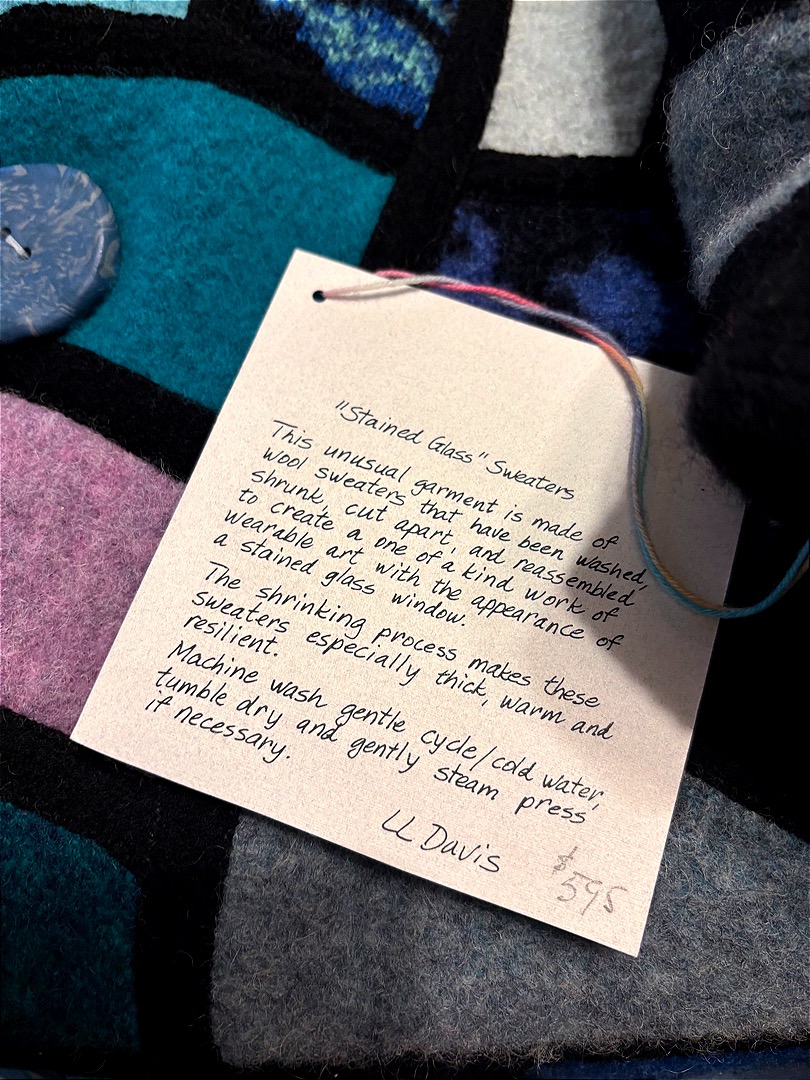 "Stained Glass" Sweaters
This unusual garment is made of
wool sweaters that have been washed,
shrunk, cut apart, and reassembled
to create a one of a kind work of
wearable art with the appearance of
a stained glass window.
The shrinking process makes these
sweaters especially thick, warm and
resilient.
Machine wash gentle cycle/cold water,
tumble dry and gently steam press
if necessary.
LL Davis
$595